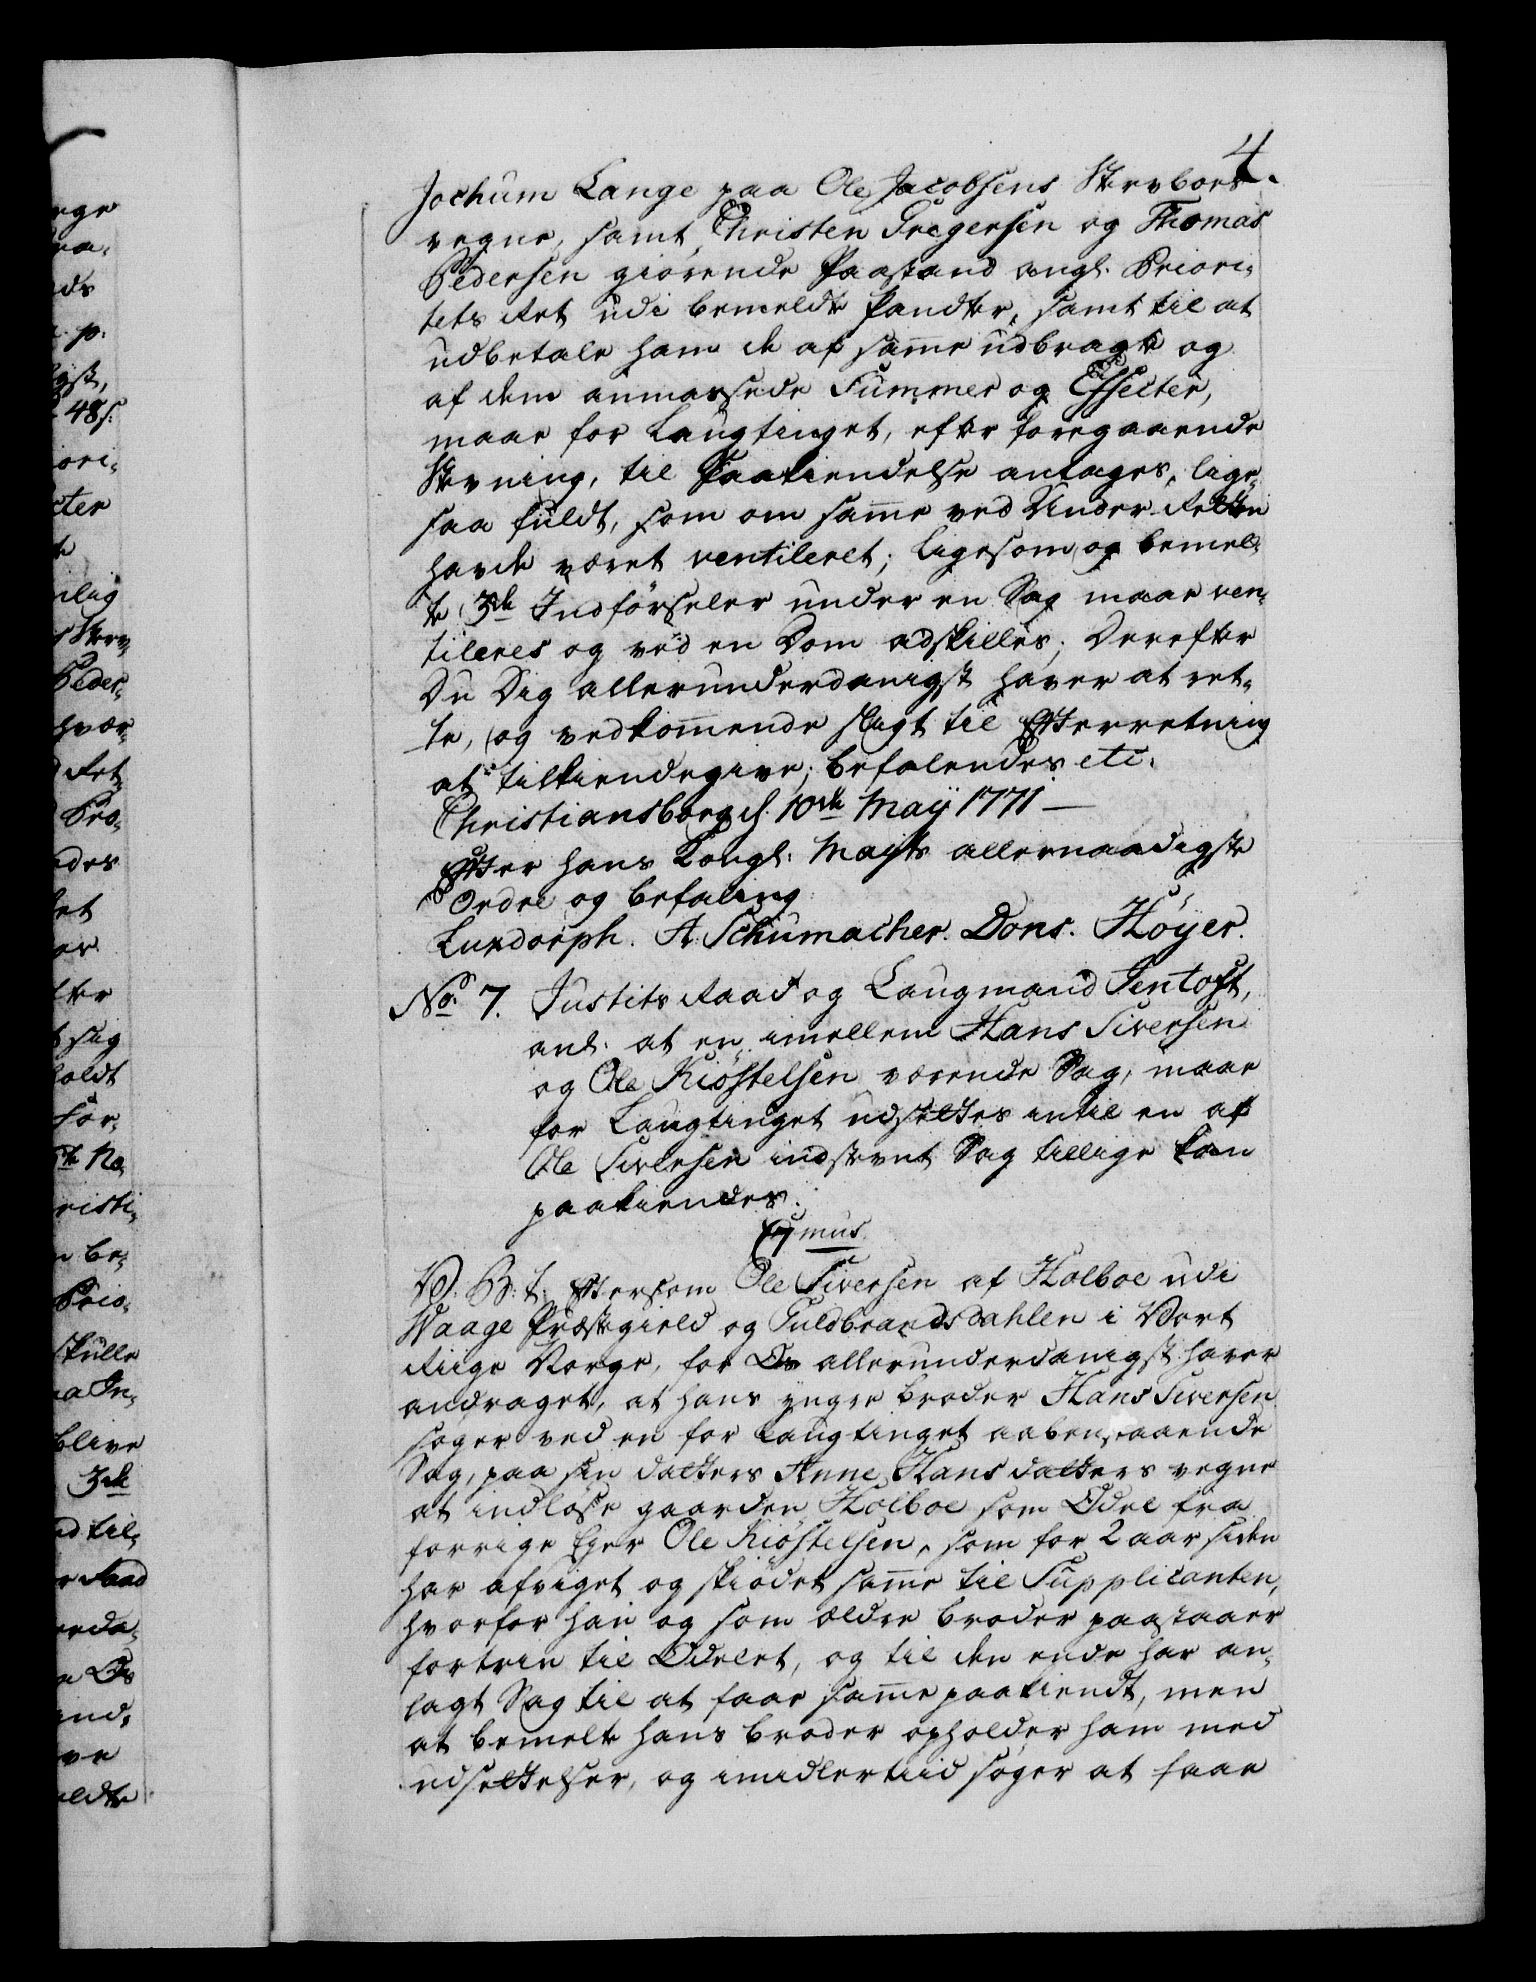 4.
Jochum Lange paa Ole Jacobsens Stervboes
vegne, samt Christen Gregersen og Thomas
Pedersen giørende Paastand angl. Priori-
tets Ret udi bemeldte Pandter, samt til at
udbetale ham de af sam̄e udbragte og
af dem anmassede Summer og Effecter,
maae for Laugtinget, efter foregaaende
Stevning, til Paakiendelse antages, lige-
saa fuldt, som om sam̄e ved Under-Retten
havde været ventileret; ligesom og bemel-
te 3de Indførseler under en Sag maae ven-
tileres og ved en Dom adskilles; Derefter
Du Dig allerunderdanigst haver at ret-
te, og vedkom̄ende sligt til Efterretning
at tilkiendegive; befalendes etc.
Christiansborg d. 10de Maÿ 1771 —
Efter Hans Kongl. Mayts allernaadigste
Ordre og befaling
Luxdorph. A. Schumacher. Dons. Höyer.
No. 7. Justits Raad og Laugmand Tentoft,
anl. at en imellem Hans Siversen
og Ole Kiöstelsen værende Sag, maae
for Laugtinget udsettes intil en af
Ole Siversen indstevnt Sag tillige kan
paakiendes.
C7mus
V. G. t. Eftersom Ole Siversen af Holboe udi
Waage Præstegield og Guldbrandsdahlen i Vort
Riige Norge, for Os allerunderdanigst haver
andraget, at hans yngre broder Hans Siversen
søger ved en for Laugtinget aabenstaaende
Sag, paa sin datters Anne Hansdatters vegne
at indløse gaarden Holboe som Odel fra
forrige Eyer Ole Kiöstelsen, som for 2 aar siden
har afviget og skiødet sam̄e til Supplicanten,
hvorfor han og som ældre broder paastaaer
fortrin til Odelet, og til den ende har an-
lagt Sag til at faae sam̄e paakiendt, men
at bemelte hans broder opholder ham med
udsettelser, og imidlertiid søger at faae